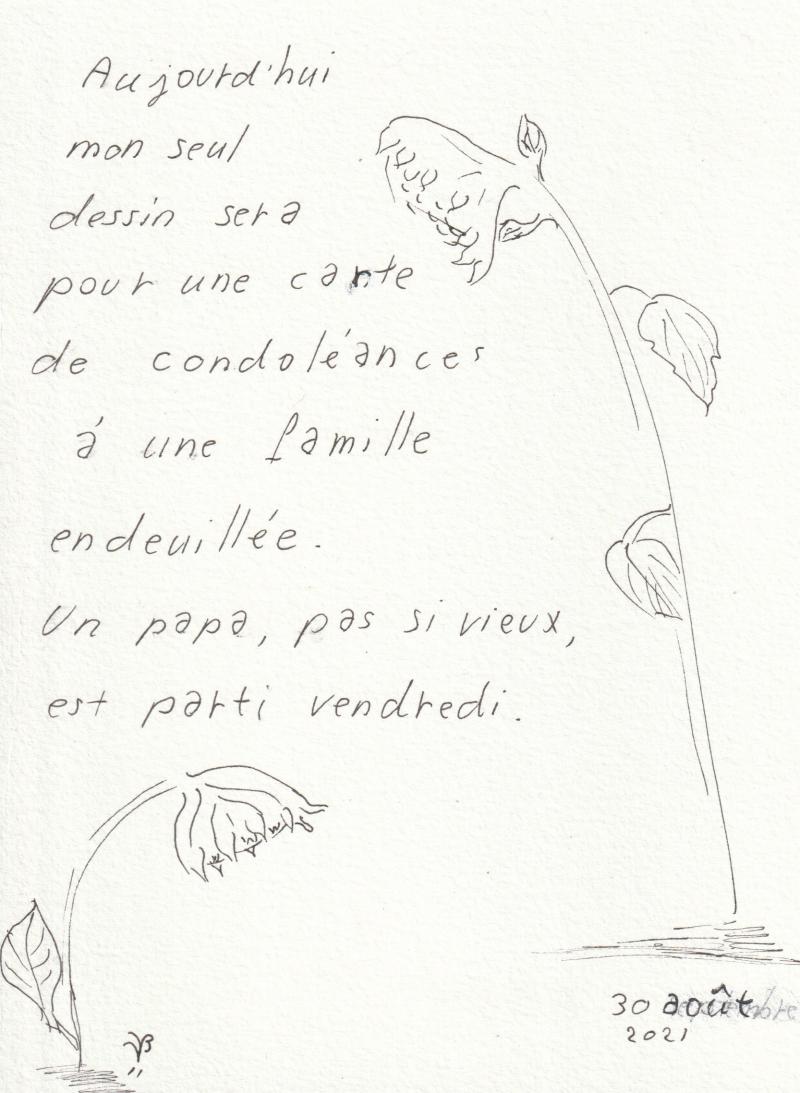 Aujourd'hui
mon seul
dessin sera
pour une carte
de condoléances
à une famille
endeuillée.
Un papa, pas si vieux,
est parti vendredi.
30 août
2021